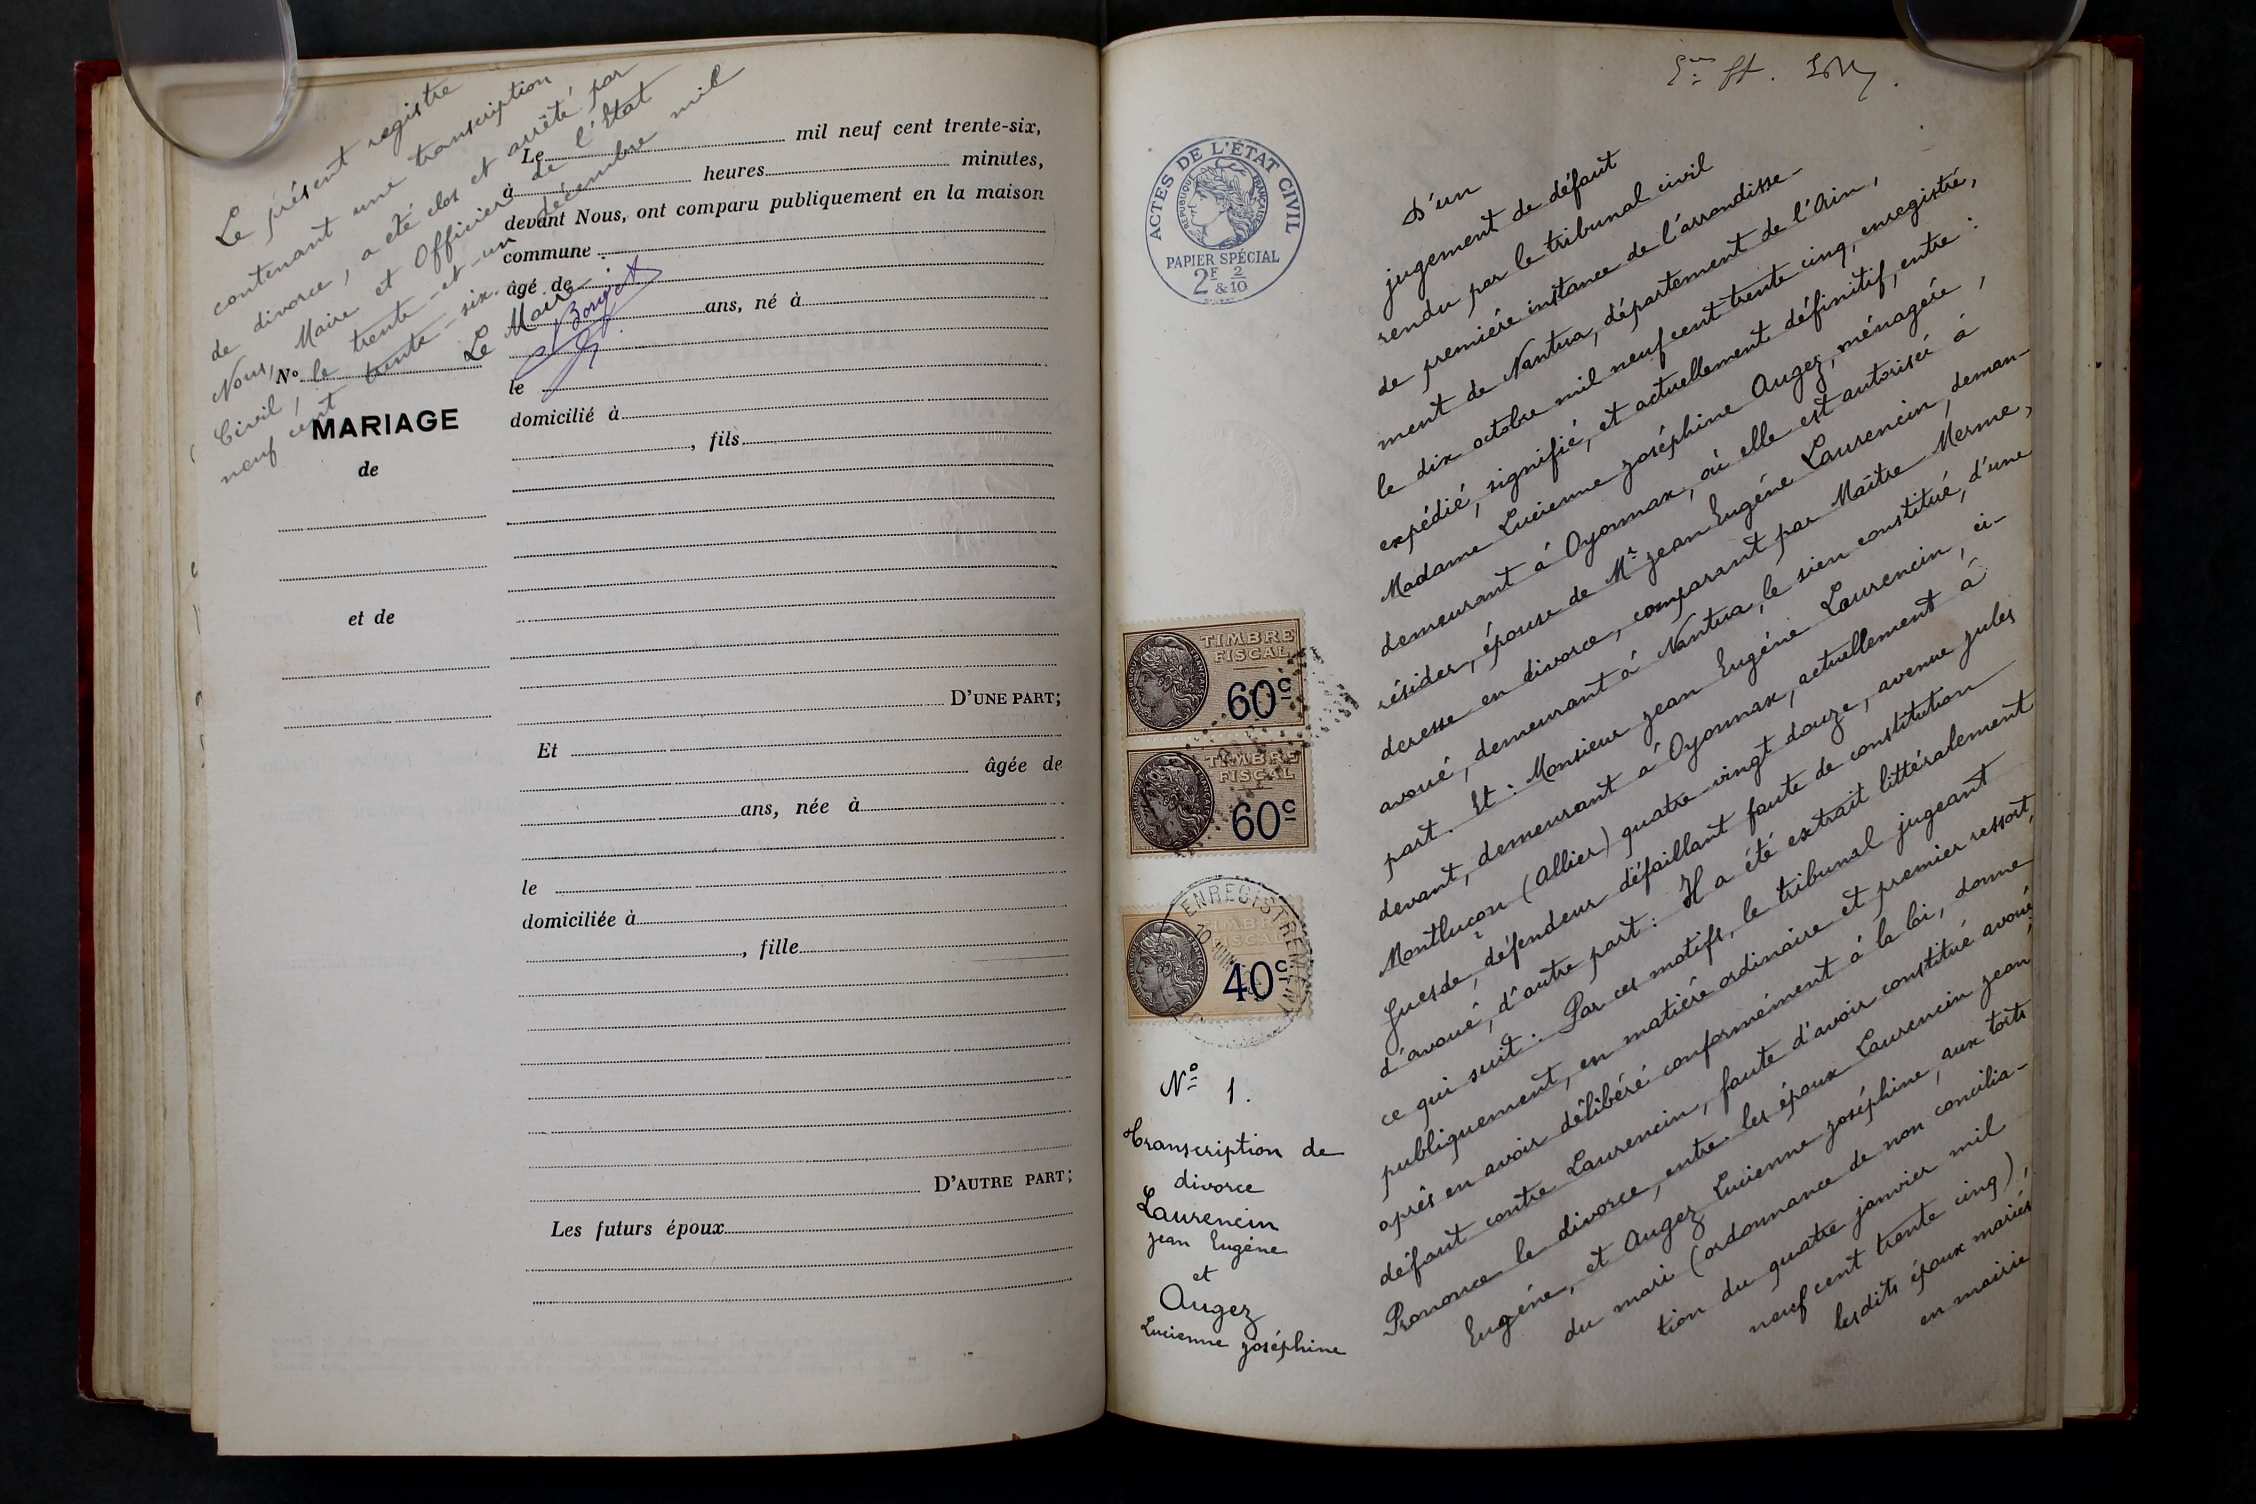 Le présent registre
contenant une transcription
de divorce, a été clos et arrêté, par
Nous, Maire et Officier de l'Etat
Civil, le trente-et-un décembre mil
neuf cent trente-six.
Le Maire
Le mil neuf cent trente-six,
à heures minutes,
devant Nous, ont comparu publiquement en la maison
commune :
âgé de
ans, né à
le
domicilié à
, fils
D'UNE PART;
Et
âgée de
ans, née à
le
domiciliée à
, fille
D'AUTRE PART;
Les futurs époux
N°
MARIAGE
de
et de
ACTES DE L'ÉTAT CIVIL
RÉPUBLIQUE FRANÇAISE
PAPIER SPÉCIAL
2F & 2/10
TIMBRE
FISCAL
60c
TIMBRE
FISCAL
60c
ENREGISTREMENT
TIMBRE
FISCAL
40c
N° 1.
Transcription de
divorce
Laurencin
Jean Eugéne
et
Augez
Lucienne Joséphine
D'un
jugement de défaut
rendu par le tribunal civil
de premiére instance de l'arrondisse-
ment de Nantua, département de l'Ain,
le dix octobre mil neuf cent trente cinq, enregistré,
expédié, signifié, et actuellement définitif, entre :
Madame Lucienne Joséphine Augez, ménagére,
demeurant á Oyonnax, où elle est autorisée á
résider, épouse de Mr Jean Eugéne Laurencin, deman-
deresse en divorce, comparant par Maître Merme,
avoué, demeurant á Nantua, le sien constitué, d'une
part. Et : Monsieur Jean Eugéne Laurencin, ci-
devant, demeurant á Oyonnax, actuellement á
Montluçon (Allier) quatre vingt douze, avenue Jules
Guesde, défendeur défaillant faute de constitution
d'avoué, d'autre part : Il a été extrait littéralement
ce qui suit : Par ces motifs, le tribunal jugeant
publiquement, en matiére ordinaire et premier ressort,
aprés en avoir délibéré conformément á la loi, donne
défaut contre Laurencin, faute d'avoir constitué avoué,
Prononce le divorce, entre les époux Laurencin Jean
Eugéne, et Augez Lucienne Joséphine, aux torts
du mari (ordonnance de non concilia-
tion du quatre janvier mil
neuf cent trente cinq),
lesdits époux mariés
en mairie